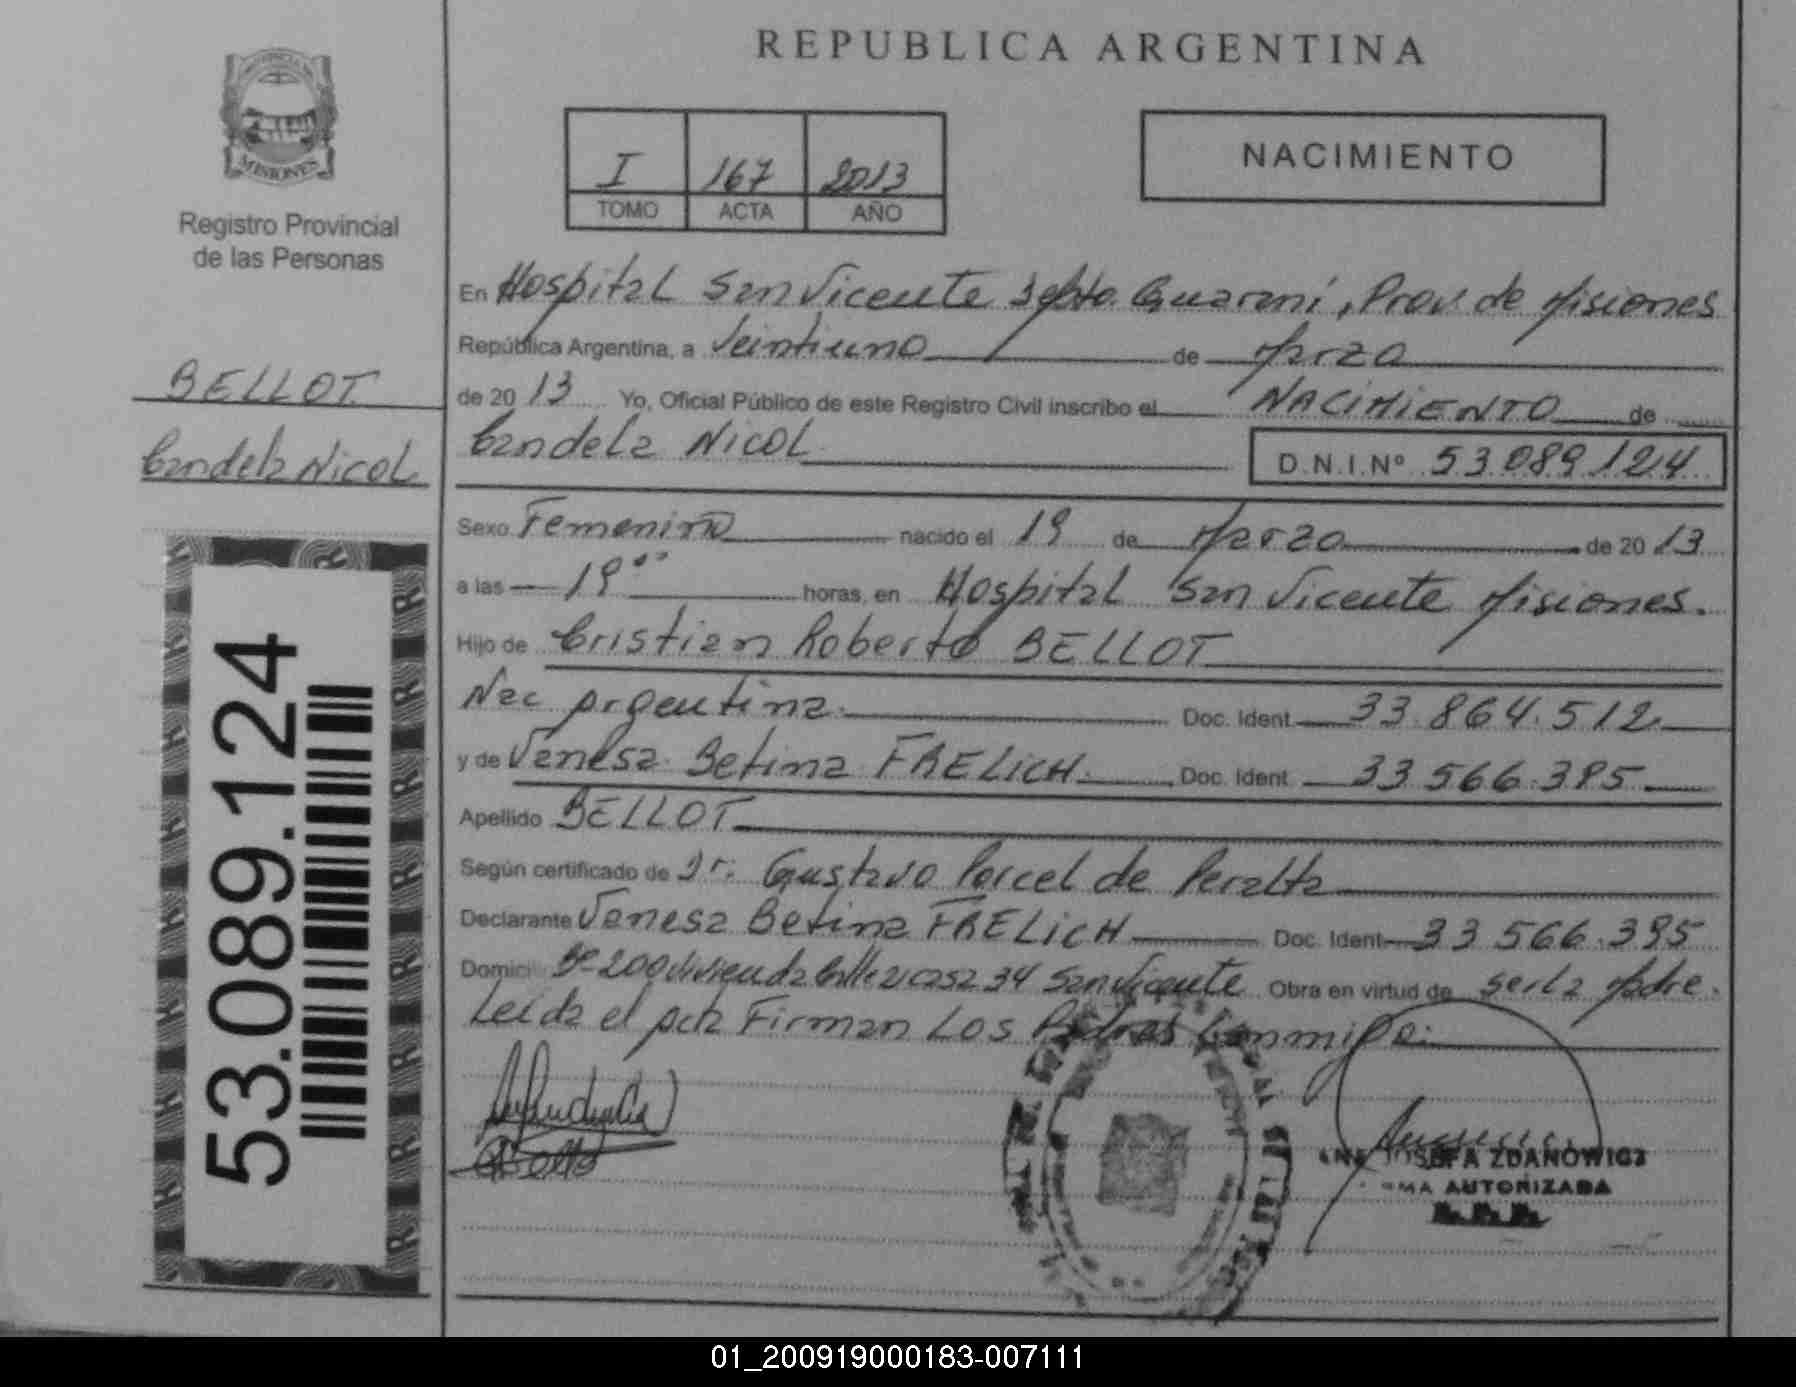 REPUBLICA ARGENTINA
MISIONES
Registro Provincial
de las Personas
I 167 2013
TOMO ACTA AÑO
NACIMIENTO
BELLOT
Candela Nicol
53.089.124
En Hospital San Vicente Depto. Guaraní, Prov. de Misiones
República Argentina, a Veintiuno de Marzo
de 2013 Yo, Oficial Público de este Registro Civil inscribo el NACIMIENTO de
Candela NICOL D.N.I.Nº 53.089.124
Sexo Femenino nacido el 19 de Marzo de 2013
a las 19 horas, en Hospital San Vicente Misiones.
Hijo de Cristian Roberto BELLOT
Nac Argentina. Doc. Ident. 33.864.512
y de Vanesa Betina FRELICH Doc. Ident. 33.566.395
Apellido BELLOT
Según certificado de Dr. Gustavo Porcel de Peralta
Declarante Vanesa Betina FRELICH Doc. Ident. 33.566.395
Domicilio Bº 200 Vivienda Calle 2 casa 34 San Vicente Obra en virtud de ser la Madre.
Leída el acta Firman Los Padres Conmigo.
JOSEFA ZDANOWICZ
AUTORIZADA
01_200919000183-007111